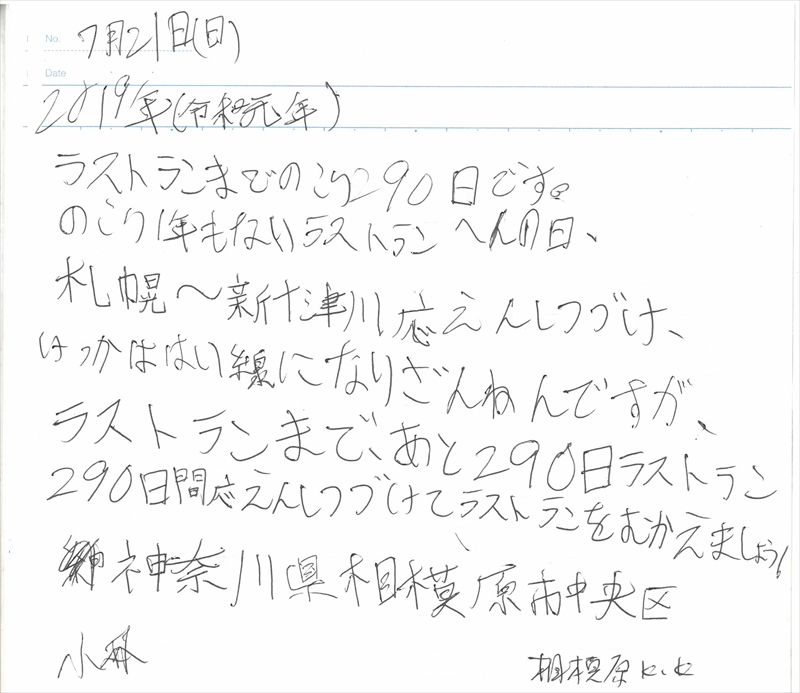 No. 7月21日(日)
Date
2019年(令和元年)
ラストランまでのこり290日です。
のこり1年もないラストランへの日、
札幌〜新十津川応えんしつづけ、
けっかははい線になりざんねんですが、
ラストランまで、あと290日ラストラン
290日間応えんしつづけてラストランをむかえましょう!
神奈川県相模原市中央区
小林
相模原K.K